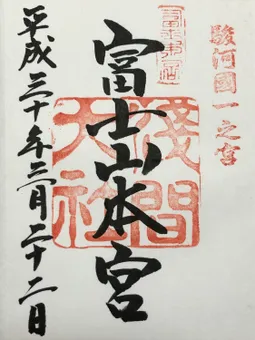 駿河國一之宮
富士山本宮
淺間大社
平成三十年三月二十二日